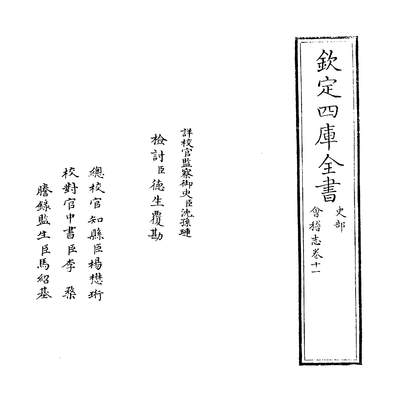 欽定四庫全書
史部
會稽志卷十一
詳校官監察御史臣沈孫璉
檢討臣德生覆勘
總校官知縣臣楊懋珩
校對官中書臣李荃
謄錄監生臣馬紹基